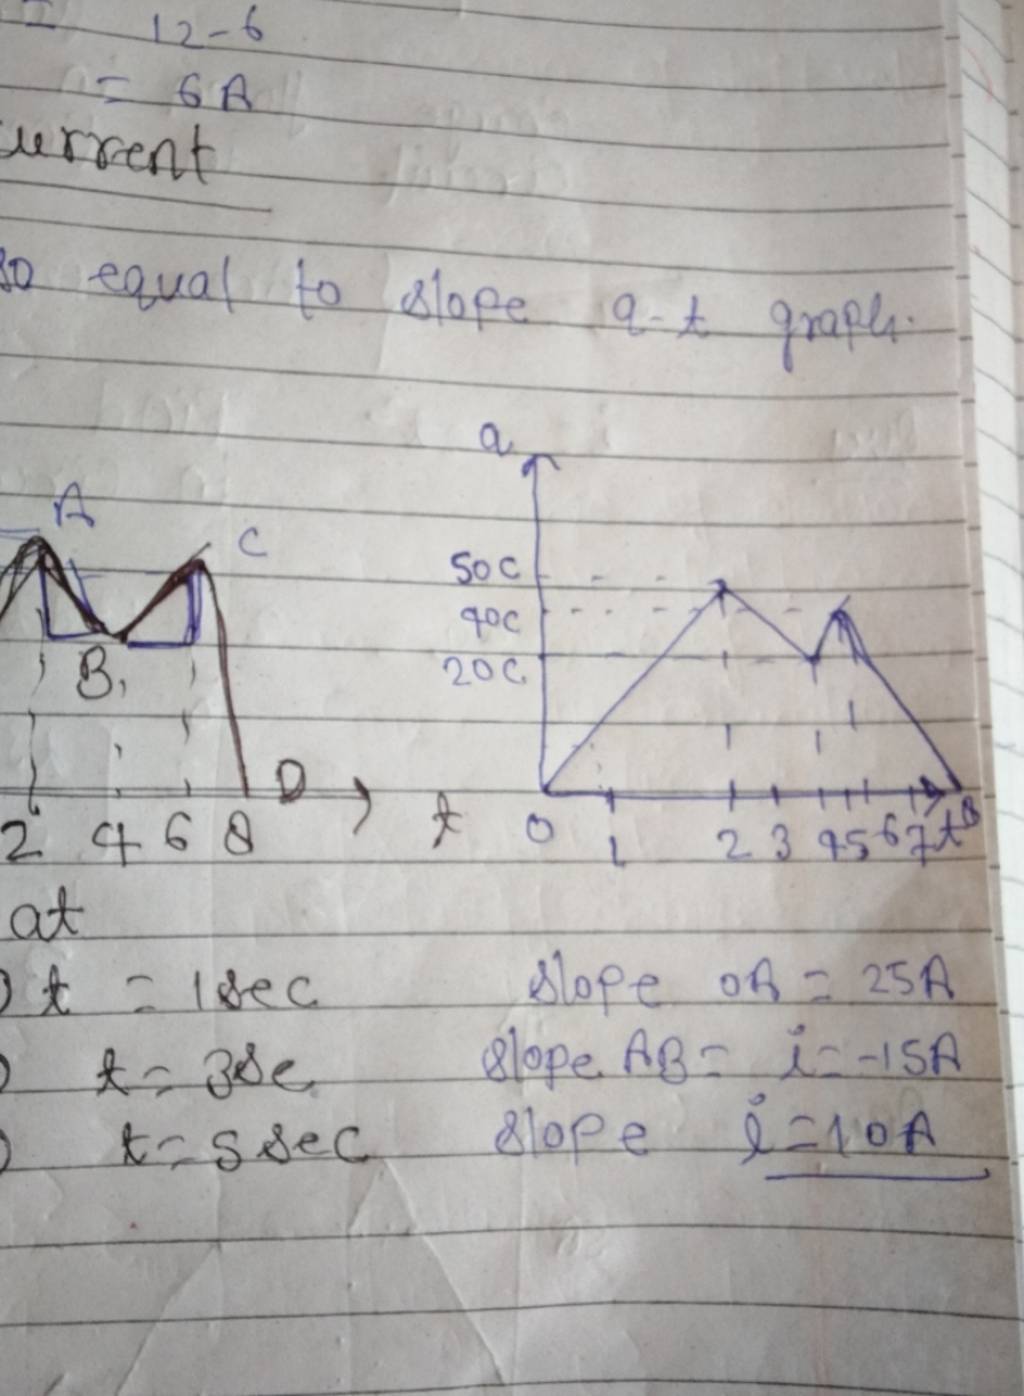 12-6
= 6A
urrent
so equal to slope q-t graph.
A
C
B
D
2 4 6 8
t
Q
50C
40C
20C
0 1 2 3 4 5 6 7 t 8
at
t = 1 sec slope OA = 25A
t = 3 se slope AB = i = -15A
t = 5 sec slope i = 10A